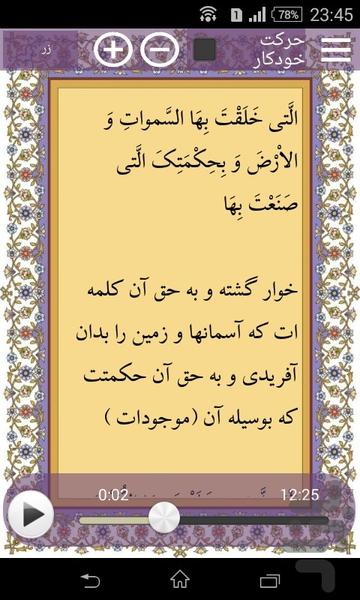 78% 23:45
حرکت
خودکار
زر
الَّتى خَلَقْتَ بِهَا السَّمواتِ وَ
الاْرْضَ وَ بِحِکْمَتِکَ الَّتى
صَنَعْتَ بِهَا
خوار گشته و به حق آن کلمه
ات که آسمانها و زمین را بدان
آفریدی و به حق آن حکمتت
که بوسیله آن (موجودات )
0:02 12:25